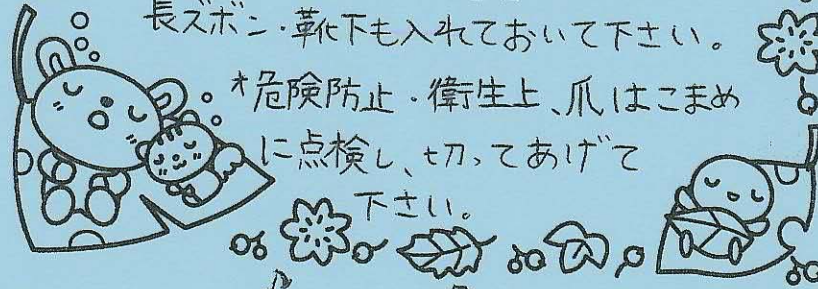 長ズボン・靴下も入れておいて下さい。
*危険防止・衛生上、爪はこまめ
に点検し、切ってあげて
下さい。